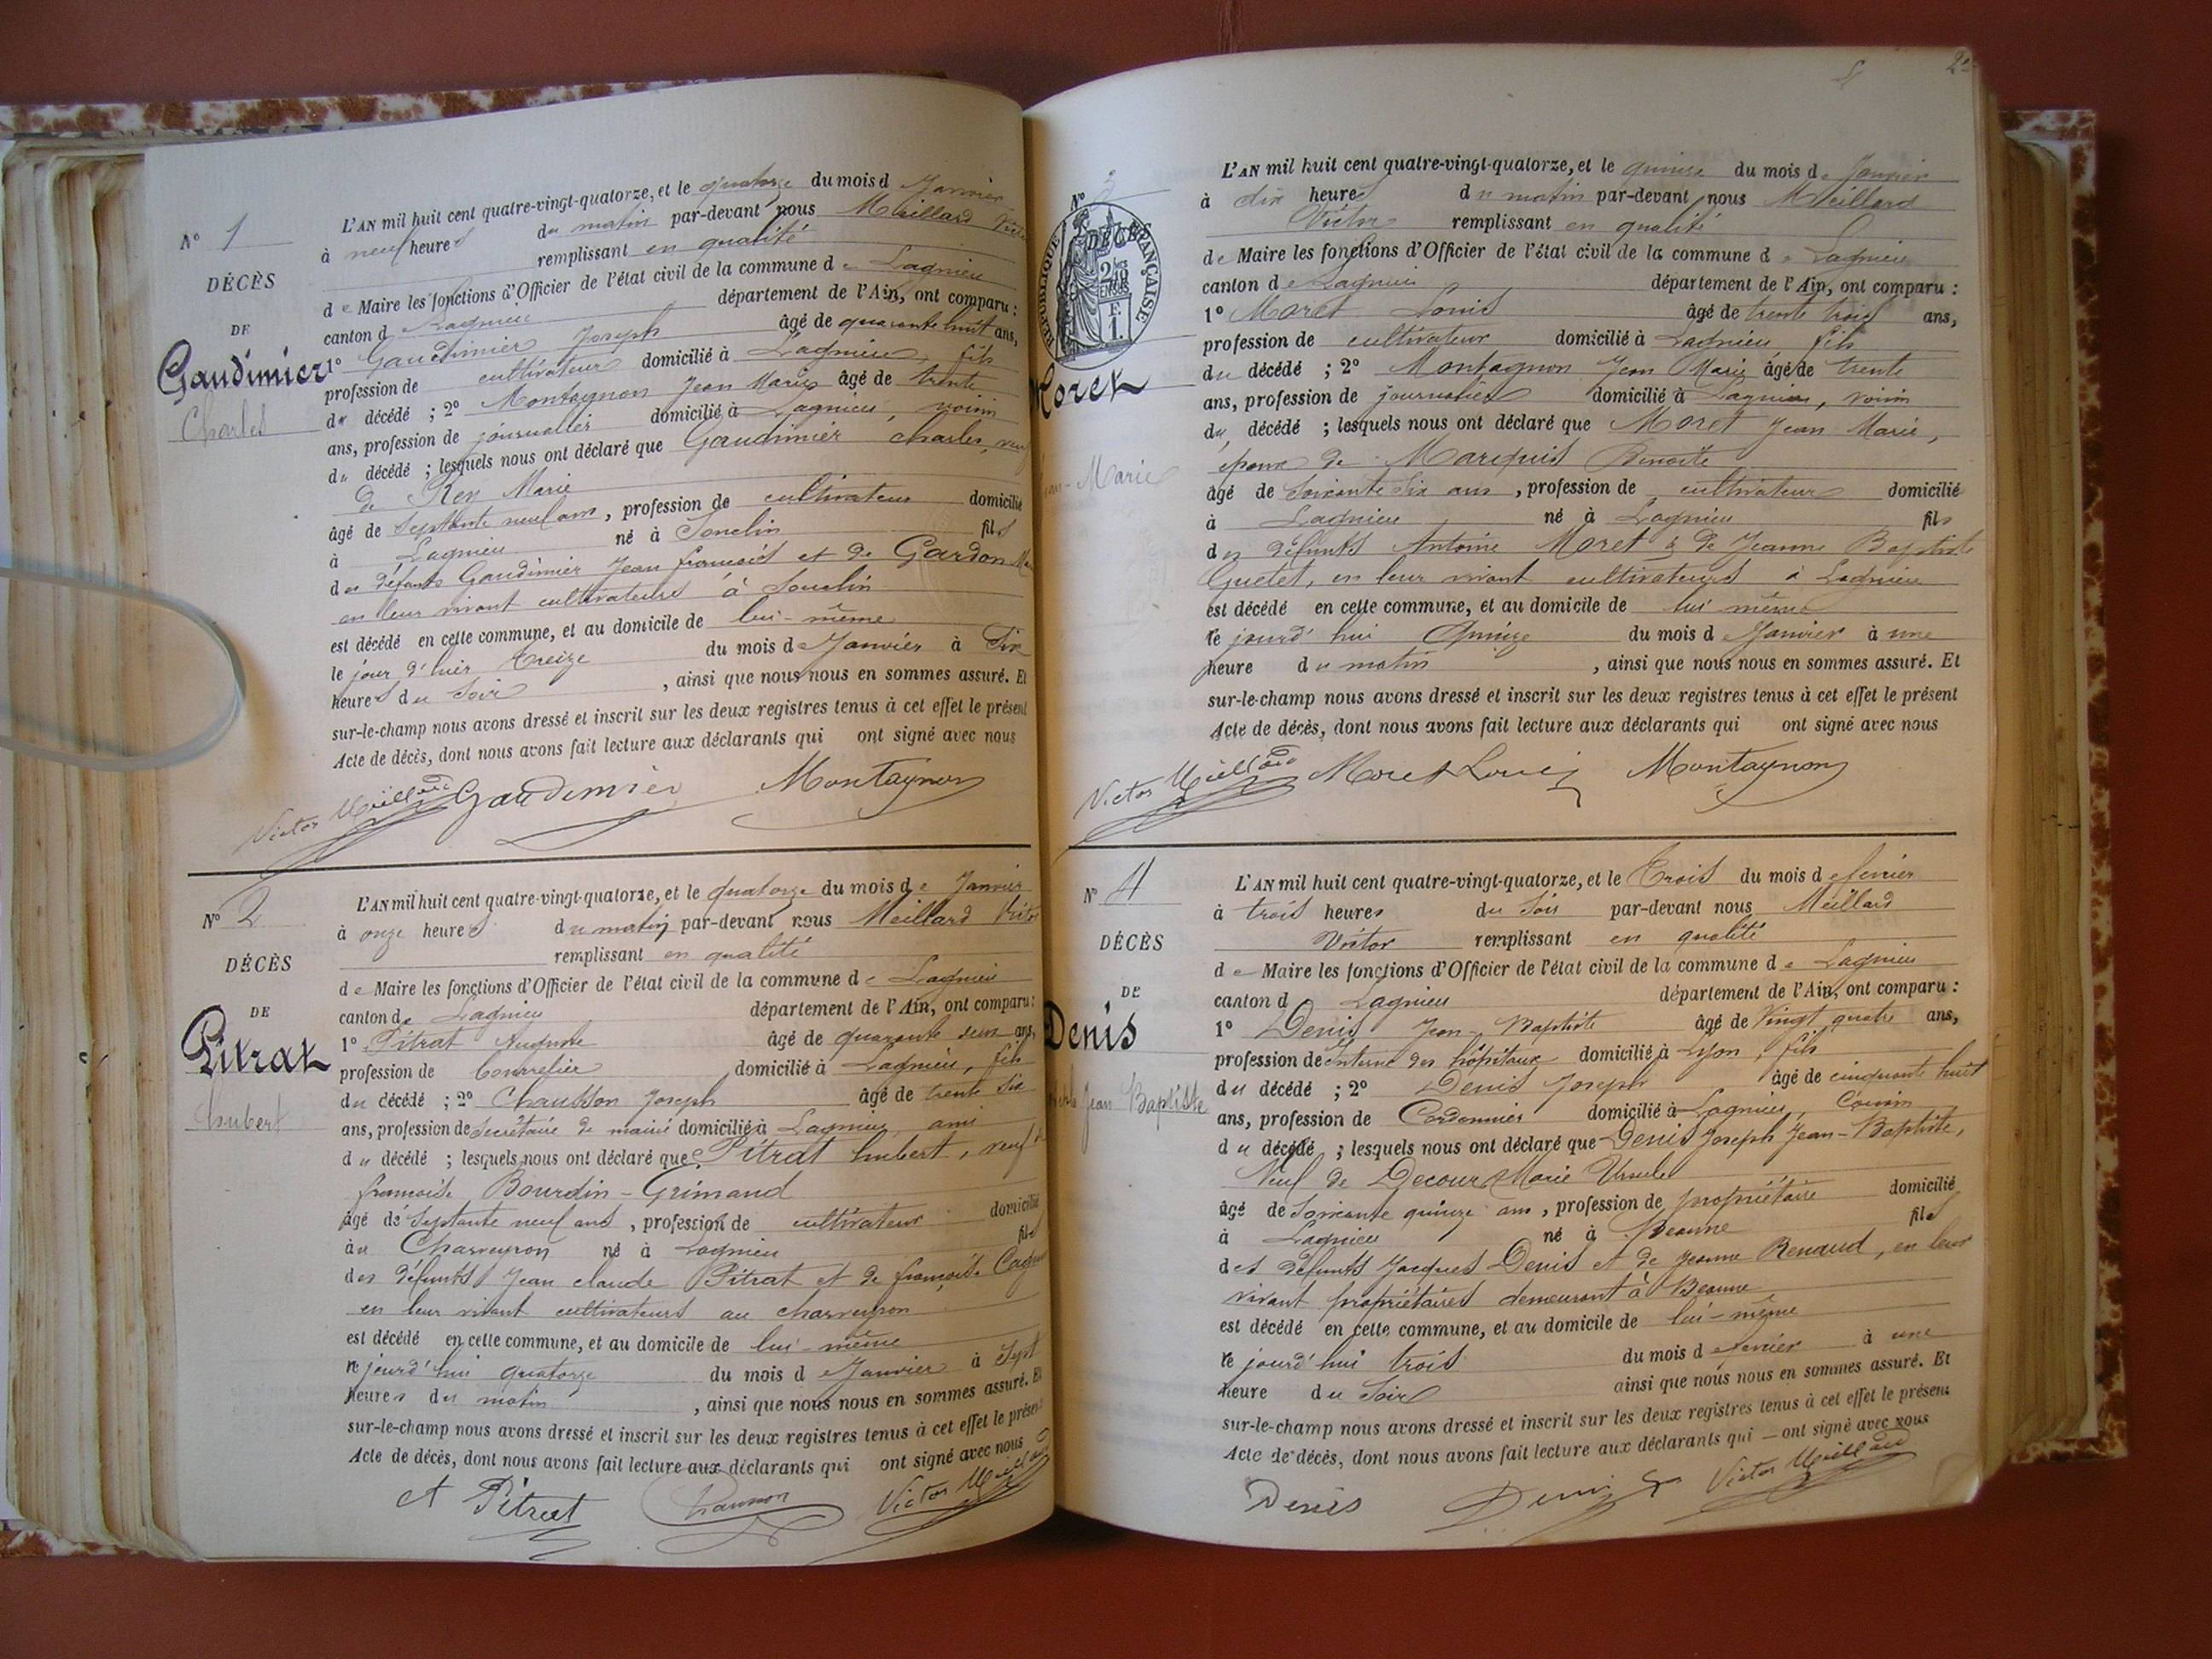 L'AN mil huit cent quatre-vingt-quatorze, et le quatorze du mois d Janvier
à neuf heures du matin par-devant nous Meillard
remplissant en qualité
de Maire les fonctions d'Officier de l'état civil de la commune de Lagnieu
canton d Lagnieu département de l'Ain, ont comparu :
1° Gaudimier Joseph âgé de quarante huit ans,
profession de cultivateur domicilié à Lagnieu, fils
du décédé ; 2° Montagnon Jean Marie âgé de trente
ans, profession de journalier domicilié à Lagnieu, voisin
du décédé ; lesquels nous ont déclaré que Gaudimier Charles,
de Rey Marie
âgé de septante neuf ans, profession de cultivateur domicilié
à Lagnieu né à Souclin fils
des défunts Gaudimier Jean françois et de Gardon
en leur vivant cultivateurs à Souclin
est décédé en cette commune, et au domicile de lui-même
le jour d'hier treize du mois de Janvier à Six
heures du Soir, ainsi que nous nous en sommes assuré. Et
sur-le-champ nous avons dressé et inscrit sur les deux registres tenus à cet effet le présent
Acte de décès, dont nous avons fait lecture aux déclarants qui ont signé avec nous
Victor Meillard Gaudimier Montagnon
N° 1
DÉCÈS
DE
Gaudimier
Charles
N° 2
DÉCÈS
DE
Pitrat
humbert
L'AN mil huit cent quatre-vingt-quatorze, et le quatorze du mois de Janvier
à onze heures du matin par-devant nous Meillard Victor
remplissant en qualité
de Maire les fonctions d'Officier de l'état civil de la commune de Lagnieu
canton de Lagnieu département de l'Ain, ont comparu :
1° Pitrat Auguste âgé de quarante deux ans,
profession de domicilié à Lagnieu, fils
du décédé ; 2° Chausson Joseph âgé de trente Six
ans, profession de Secrétaire de mairie domicilié à Lagnieu, ami
du décédé ; lesquels nous ont déclaré que Pitrat humbert, veuf
françoise Bourdin-Grimaud
âgé de Septante neuf ans, profession de cultivateur domicilié
au Charveyron né à Lagnieu fils
des défunts Jean claude Pitrat et de françoise
en leur vivant cultivateurs au charveyron
est décédé en cette commune, et au domicile de lui-même
ce jourd'hui quatorze du mois de Janvier à Sept
heures du matin, ainsi que nous nous en sommes assuré. Et
sur-le-champ nous avons dressé et inscrit sur les deux registres tenus à cet effet le présent
Acte de décès, dont nous avons fait lecture aux déclarants qui ont signé avec nous
A Pitrat Chausson Victor Meillard
2
N° 3
DÉCÈS
RÉPUBLIQUE FRANÇAISE
Moret
Jean-Marie
L'AN mil huit cent quatre-vingt-quatorze, et le quinze du mois de Janvier
à dix heures du matin par-devant nous Meillard
Victor remplissant en qualité
de Maire les fonctions d'Officier de l'état civil de la commune de Lagnieu
canton de Lagnieu département de l'Ain, ont comparu :
1° Moret Louis âgé de trente trois ans,
profession de cultivateur domicilié à Lagnieu fils
du décédé ; 2° Montagnon Jean Marie âgé de trente
ans, profession de journalier domicilié à Lagnieu, voisin
du décédé ; lesquels nous ont déclaré que Moret Jean Marie,
époux de Marquis Benoîte
âgé de Soixante Six ans, profession de cultivateur domicilié
à Lagnieu né à Lagnieu fils
des défunts Antoine Moret & de Jeanne Baptiste
Guetet, en leur vivant cultivateurs à Lagnieu
est décédé en cette commune, et au domicile de lui même
ce jourd'hui Quinze du mois d Janvier à une
heure du matin, ainsi que nous nous en sommes assuré. Et
sur-le-champ nous avons dressé et inscrit sur les deux registres tenus à cet effet le présent
Acte de décès, dont nous avons fait lecture aux déclarants qui ont signé avec nous
Victor Meillard Moret Louis Montagnon
N° 4
DÉCÈS
DE
Denis
Joseph Jean Baptiste
L'AN mil huit cent quatre-vingt-quatorze, et le Trois du mois de fevrier
à trois heures du Soir par-devant nous Meillard
Victor remplissant en qualité
de Maire les fonctions d'Officier de l'état civil de la commune de Lagnieu
canton d Lagnieu département de l'Ain, ont comparu :
1° Denis Jean-Baptiste âgé de Vingt quatre ans,
profession de Interne des hôpitaux domicilié à Lyon, fils
du décédé ; 2° Denis Joseph âgé de cinquante huit
ans, profession de Cordonnier domicilié à Lagnieu, Cousin
du décédé ; lesquels nous ont déclaré que Denis Joseph Jean-Baptiste,
Veuf de Decour Marie Ursule
âgé de Soixante quinze ans, profession de propriétaire domicilié
à Lagnieu né à Beaune fils
des défunts Jacques Denis et de Jeanne Renaud, en leur
vivant propriétaires demeurant à Beaune
est décédé en cette commune, et au domicile de lui-même
ce jourd'hui trois du mois d fevrier à une
heure du Soir ainsi que nous nous en sommes assuré. Et
sur-le-champ nous avons dressé et inscrit sur les deux registres tenus à cet effet le présent
Acte de décès, dont nous avons fait lecture aux déclarants qui — ont signé avec nous
Denis Denis Victor Meillard